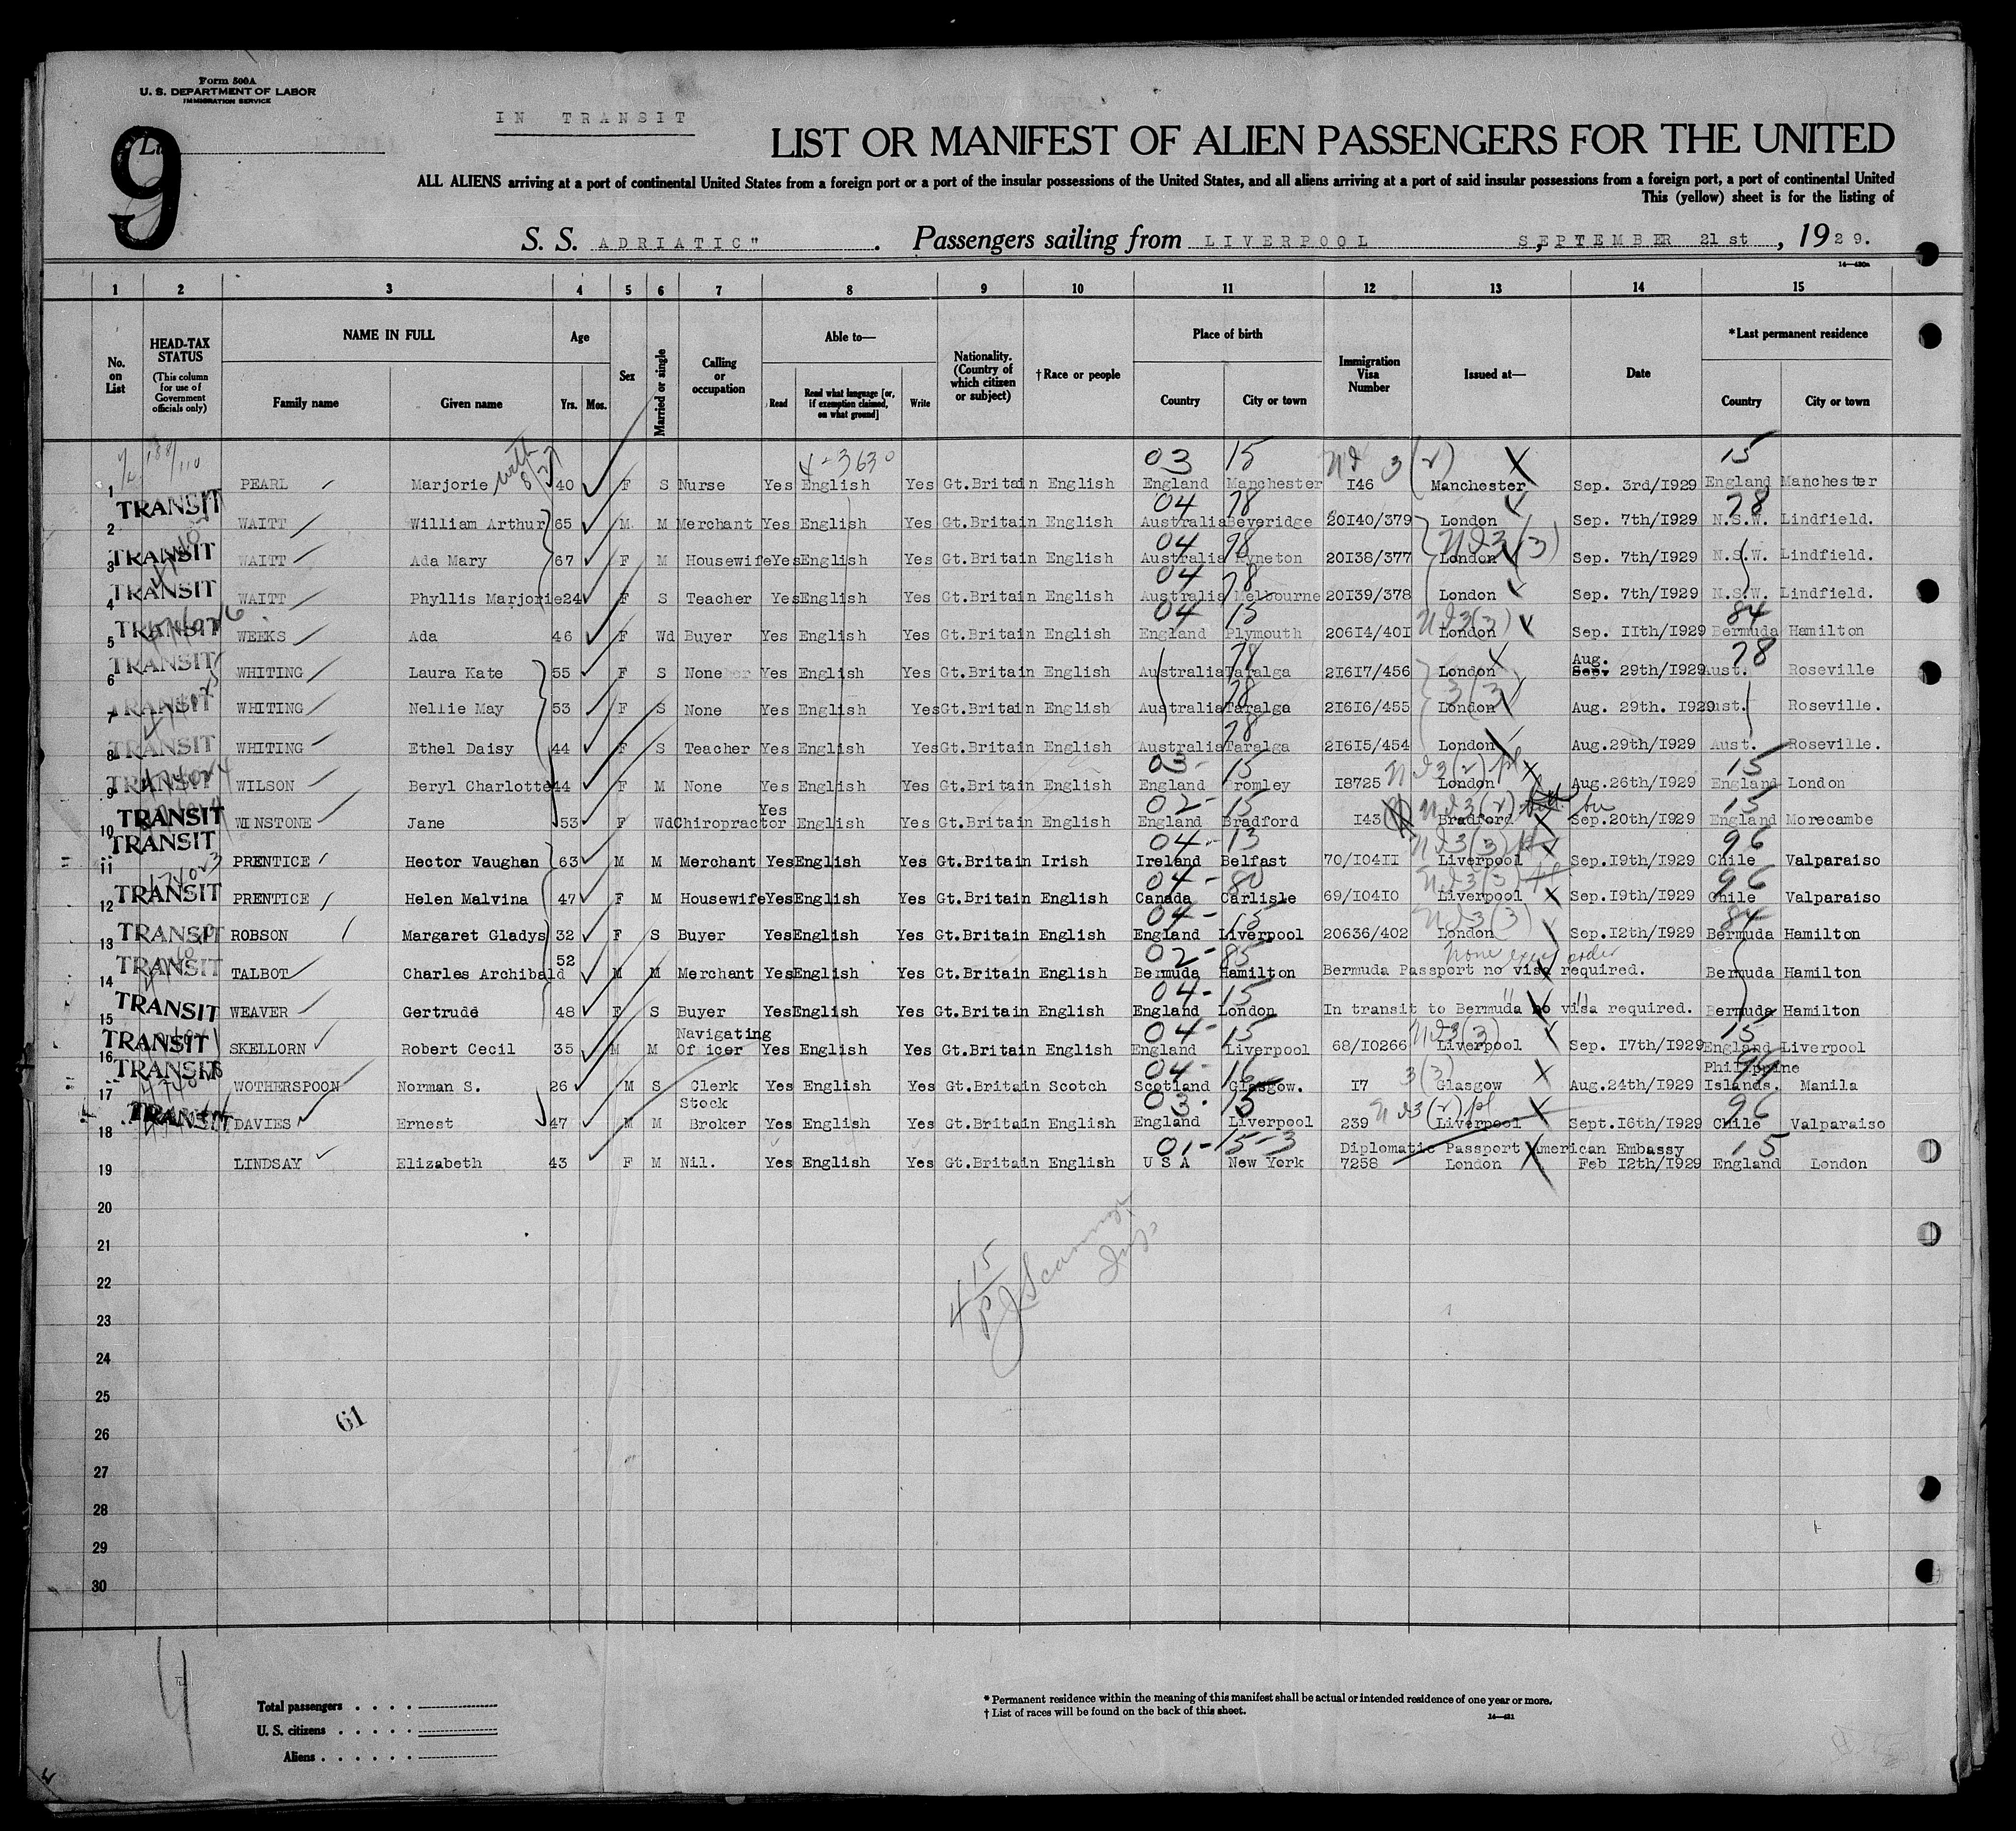 Form 500A
U. S. DEPARTMENT OF LABOR
IMMIGRATION SERVICE
IN TRANSIT
9
LIST OR MANIFEST OF ALIEN PASSENGERS FOR THE UNITED
ALL ALIENS arriving at a port of continental United States from a foreign port or a port of the insular possessions of the United States, and all aliens arriving at a port of said insular possessions from a foreign port, a port of continental United
This (yellow) sheet is for the listing of
S. S. ADRIATIC" . Passengers sailing from LIVERPOOL , SEPTEMBER 21st , 1929.
1 2 3 4 5 6 7 8 9 10 11 12 13 14 15
No. on List
HEAD-TAX STATUS (This column for use of Government officials only)
NAME IN FULL
Family name Given name
Age
Yrs. Mos.
Sex
Married or single
Calling or occupation
Able to—
Read Read what language [or, if exemption claimed, on what ground] Write
Nationality. (Country of which citizen or subject)
†Race or people
Place of birth
Country City or town
Immigration Visa Number
Issued at—
Date
*Last permanent residence
Country City or town
4-3630 03 15 3(2) 15
1 PEARL Marjorie with 40 F S Nurse Yes English Yes Gt.Britain English England Manchester I46 Manchester Sep. 3rd/1929 England Manchester
TRANSIT 04 78 78
2 WAITT William Arthur 65 M M Merchant Yes English Yes Gt.Britain English Australia Beveridge 20I40/379 London Sep. 7th/1929 N.S.W. Lindfield.
TRANSIT 04 78
3 WAITT Ada Mary 67 F M Housewife Yes English Yes Gt.Britain English Australia Kyneton 20I38/377 London Sep. 7th/1929 N.S.W. Lindfield.
TRANSIT 04 78
4 WAITT Phyllis Marjorie 24 F S Teacher Yes English Yes Gt.Britain English Australia Melbourne 20I39/378 London Sep. 7th/1929 N.S.W. Lindfield.
TRANSIT 04 15 84
5 WEEKS Ada 46 F Wd Buyer Yes English Yes Gt.Britain English England Plymouth 206I4/40I London Sep. IIth/1929 Bermuda Hamilton
TRANSIT 78 Aug. 78
6 WHITING Laura Kate 55 F S None Yes English Yes Gt.Britain English Australia Taralga 2I6I7/456 London Sep. 29th/1929 Aust. Roseville
TRANSIT 78
7 WHITING Nellie May 53 F S None Yes English Yes Gt.Britain English Australia Taralga 2I6I6/455 London Aug. 29th. 1929 Aust. Roseville.
TRANSIT 78
8 WHITING Ethel Daisy 44 F S Teacher Yes English Yes Gt.Britain English Australia Taralga 2I6I5/454 London Aug.29th/1929 Aust. Roseville.
TRANSIT 03- 15 15
9 WILSON Beryl Charlotte 44 F M None Yes English Yes Gt.Britain English England Bromley I8725 London Aug.26th/1929 England London
TRANSIT 02-15 15
10 WINSTONE Jane 53 F Wd Chiropractor Yes English Yes Gt.Britain English England Bradford I43 Bradford Sep.20th/1929 England Morecambe
TRANSIT 04-13 96
11 PRENTICE Hector Vaughan 63 M M Merchant Yes English Yes Gt.Britain Irish Ireland Belfast 70/I04II Liverpool Sep.I9th/1929 Chile Valparaiso
TRANSIT 04-80 96
12 PRENTICE Helen Malvina 47 F M Housewife Yes English Yes Gt.Britain English Canada Carlisle 69/I04I0 Liverpool Sep.I9th/1929 Chile Valparaiso
TRANSIT 04-15 84
13 ROBSON Margaret Gladys 32 F S Buyer Yes English Yes Gt.Britain English England Liverpool 20636/402 London Sep.I2th/1929 Bermuda Hamilton
TRANSIT 02-85 None exec order
14 TALBOT Charles Archibald 52 M M Merchant Yes English Yes Gt.Britain English Bermuda Hamilton Bermuda Passport no visa required. Bermuda Hamilton
TRANSIT 04-15
15 WEAVER Gertrude 48 F S Buyer Yes English Yes Gt.Britain English England London In transit to Bermuda no visa required. Bermuda Hamilton
TRANSIT 04-15 15
16 SKELLORN Robert Cecil 35 M M Navigating Officer Yes English Yes Gt.Britain English England Liverpool 68/I0266 Liverpool Sep. I7th/1929 England Liverpool
TRANSIT 04-16
17 WOTHERSPOON Norman S. 26 M S Clerk Yes English Yes Gt.Britain Scotch Scotland Glasgow. I7 Glasgow Aug.24th/1929 Philippine Islands. Manila
TRANSIT 03-15 96
18 DAVIES Ernest 47 M M Stock Broker Yes English Yes Gt.Britain English England Liverpool 239 Liverpool Sept.I6th/1929 Chile Valparaiso
01-15-3 Diplomatic Passport American Embassy 15
19 LINDSAY Elizabeth 43 F M Nil. Yes English Yes Gt.Britain English U S A New York 7258 London Feb I2th/1929 England London
20
21
22
23
24
25
26
27
28
29
30
61
4
Total passengers
U. S. citizens
Aliens
* Permanent residence within the meaning of this manifest shall be actual or intended residence of one year or more.
† List of races will be found on the back of this sheet.